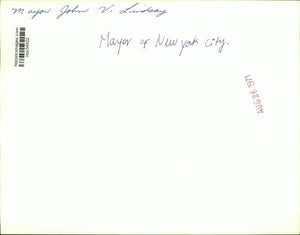 Mayor John V. Lindsay
Mayor of New York City.
AUG 26 1971